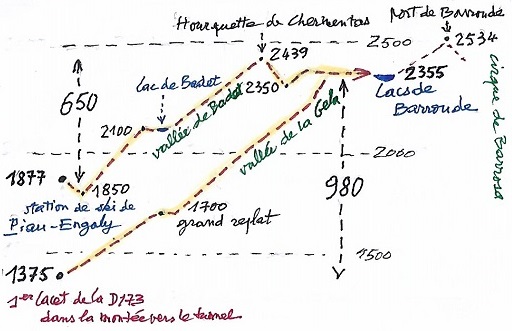 Port de Barroude
Hourquette de Chermentas
2439
2500
2534
Lac de Badet
650
2350
2355
Lacs de
Barroude
cirque de Barrosa
2100
vallée de Badet
vallée de la Gela
2000
1877
1850
980
station de ski de
Piau-Engaly
1700
grand replat
1500
1375
1er lacet de la D173
dans la montée vers le tunnel